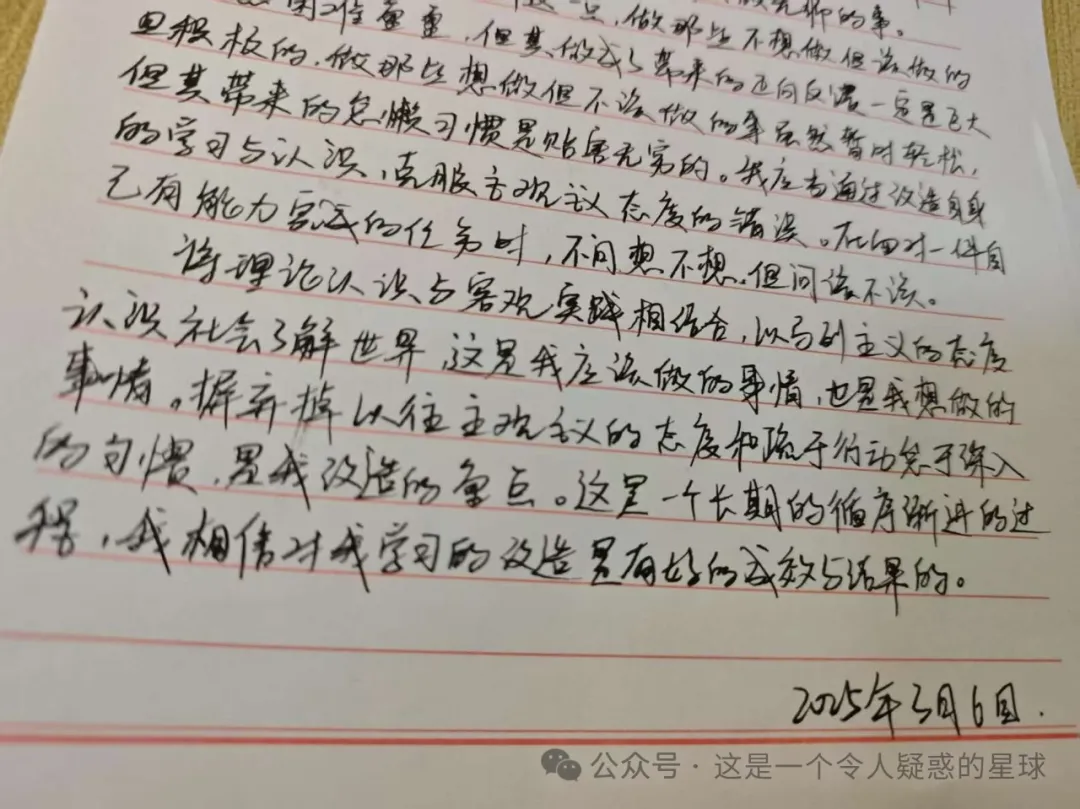 困难重重，但其做成了带来的正向反馈一定是巨大
且积极的，做那些想做但不该做的事虽然暂时轻松，
但其带来的怠懒习惯是贻害无穷的。我应当通过改造自身
的学习与认识，克服主观主义态度的错误。在面对一件自
己有能力完成的任务时，不问想不想，但问该不该。
将理论认识与客观实践相结合，以马列主义的态度
认识社会了解世界，这是我应该做的事情，也是我想做的
事情。摒弃掉以往主观主义的态度和疏于行动怠于深入
的习惯，是我改造的重点。这是一个长期的循序渐进的过
程，我相信对我学习的改造是有好的成效与结果的。
2025年3月6日.
公众号·这是一个令人疑惑的星球